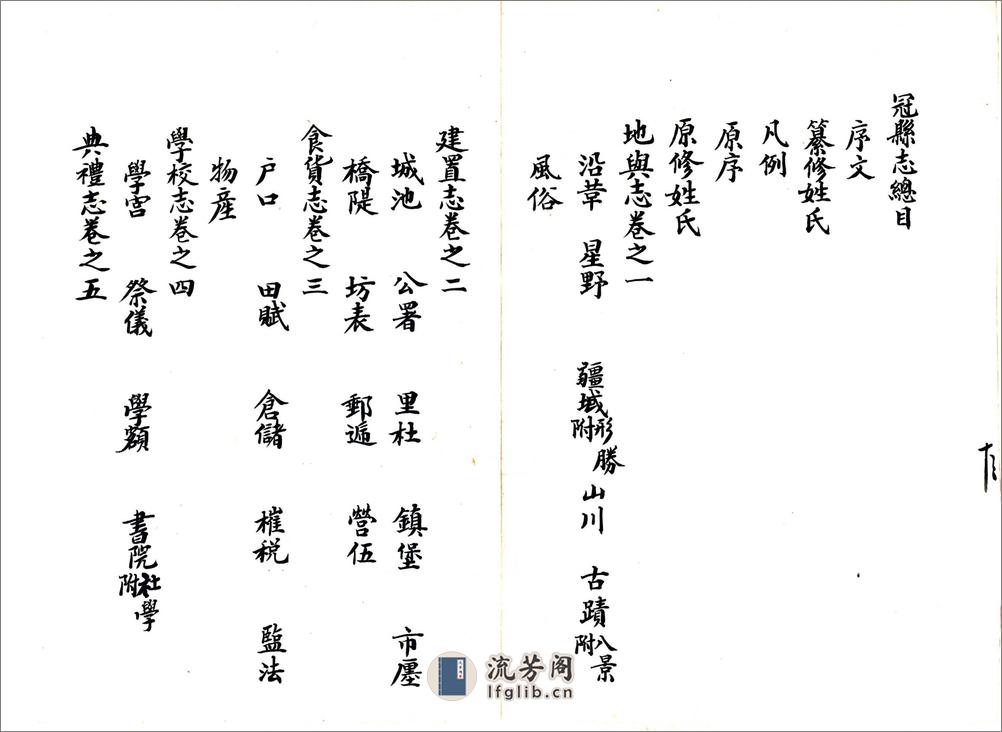 冠縣志總目
序文
纂修姓氏
凡例
原序
原修姓氏
地輿志卷之一
沿革 星野 疆域形勝附 山川 古蹟八景附
風俗
建置志卷之二
城池 公署 里社 鎮堡 市廛
橋隄 坊表 郵逓 營伍
食貨志卷之三
户口 田賦 倉儲 榷税 監法
物産
學校志卷之四
學宮 祭儀 學額 書院社學附
典禮志卷之五
流芳阁
lfglib.cn